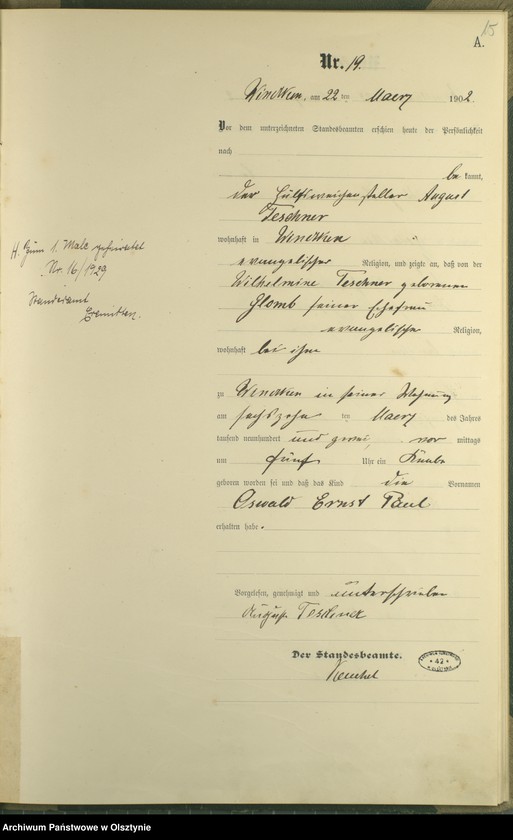 15
A.
Nr. 19.
Windken, am 22 ten Maerz 1902
Vor dem unterzeichneten Standesbeamten erschien heute der Persönlichkeit
nach
be kannt,
der Hülfsweichensteller August
Teschner
wohnhaft in Windken
evangelischer Religion, und zeigte an, daß von der
Wilhelmine Teschner geborenen
Glomb seiner Ehefrau
evangelischer Religion,
wohnhaft bei ihm
zu Windken in seiner Wohnung
am sechszehn ten Maerz des Jahres
tausend neunhundert und zwei, vor mittags
um fünf Uhr ein Knabe
geboren worden sei und daß das Kind die Vornamen
Oswald Ernst Paul
erhalten habe.
Vorgelesen, genehmigt und unterschrieben
August Teschner
Der Standesbeamte.
H. Zum 1. Male geheiratet
Nr. 16/1929
Standesamt
42
Archiwum Państwowe w Olsztynie